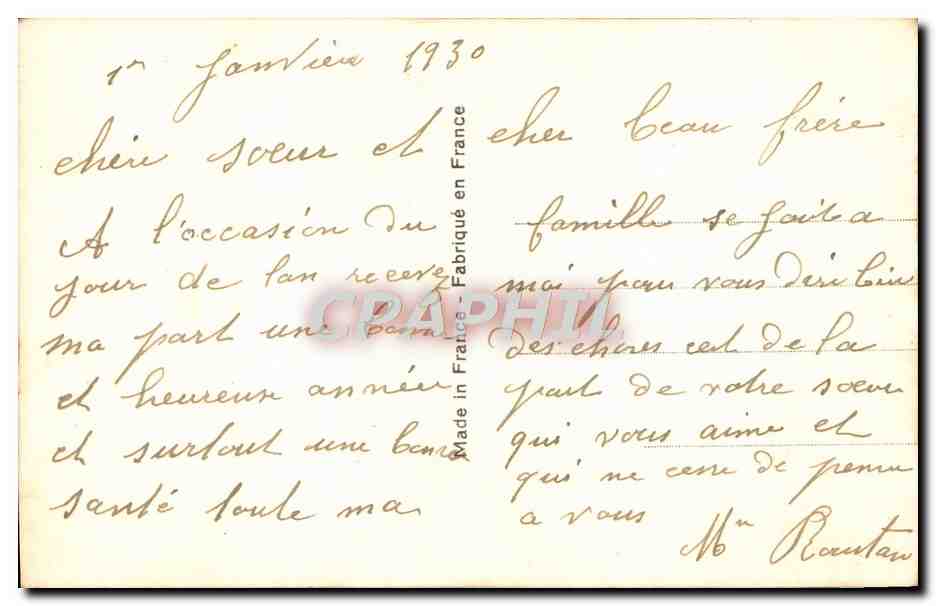 1er Janvier 1930
chère sœur et cher beau frère
A l'occasion du
jour de lan recevez
ma part une bonne
et heureuse année
et surtout une bonne
santé toute ma
famille se joit a
moi pour vous dire bien
des choses cet de la
part de votre sœur
qui vous aime et
qui ne cesse de penser
a vous
Mme Rautau
Made in France - Fabriqué en France
CPAPHIL